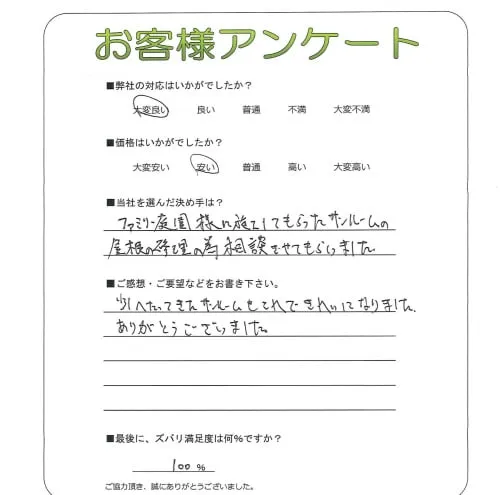 お客様アンケート
■弊社の対応はいかがでしたか?
大変良い 良い 普通 不満 大変不満
■価格はいかがでしたか?
大変安い 安い 普通 高い 大変高い
■当社を選んだ決め手は?
ファミリー庭園様に施工してもらったサンルームの
屋根の修理の為相談させてもらいました
■ご感想・ご要望などをお書き下さい。
少しへたってきたサンルームもこれできれいになりました.
ありがとうございました。
■最後に、ズバリ満足度は何%ですか?
100 %
ご協力頂き、誠にありがとうございました。